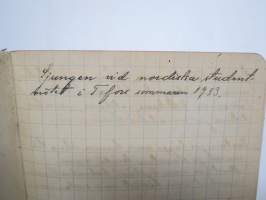 Sjungen vid nordiska student-
mötet i T:fors sommaren 1933.